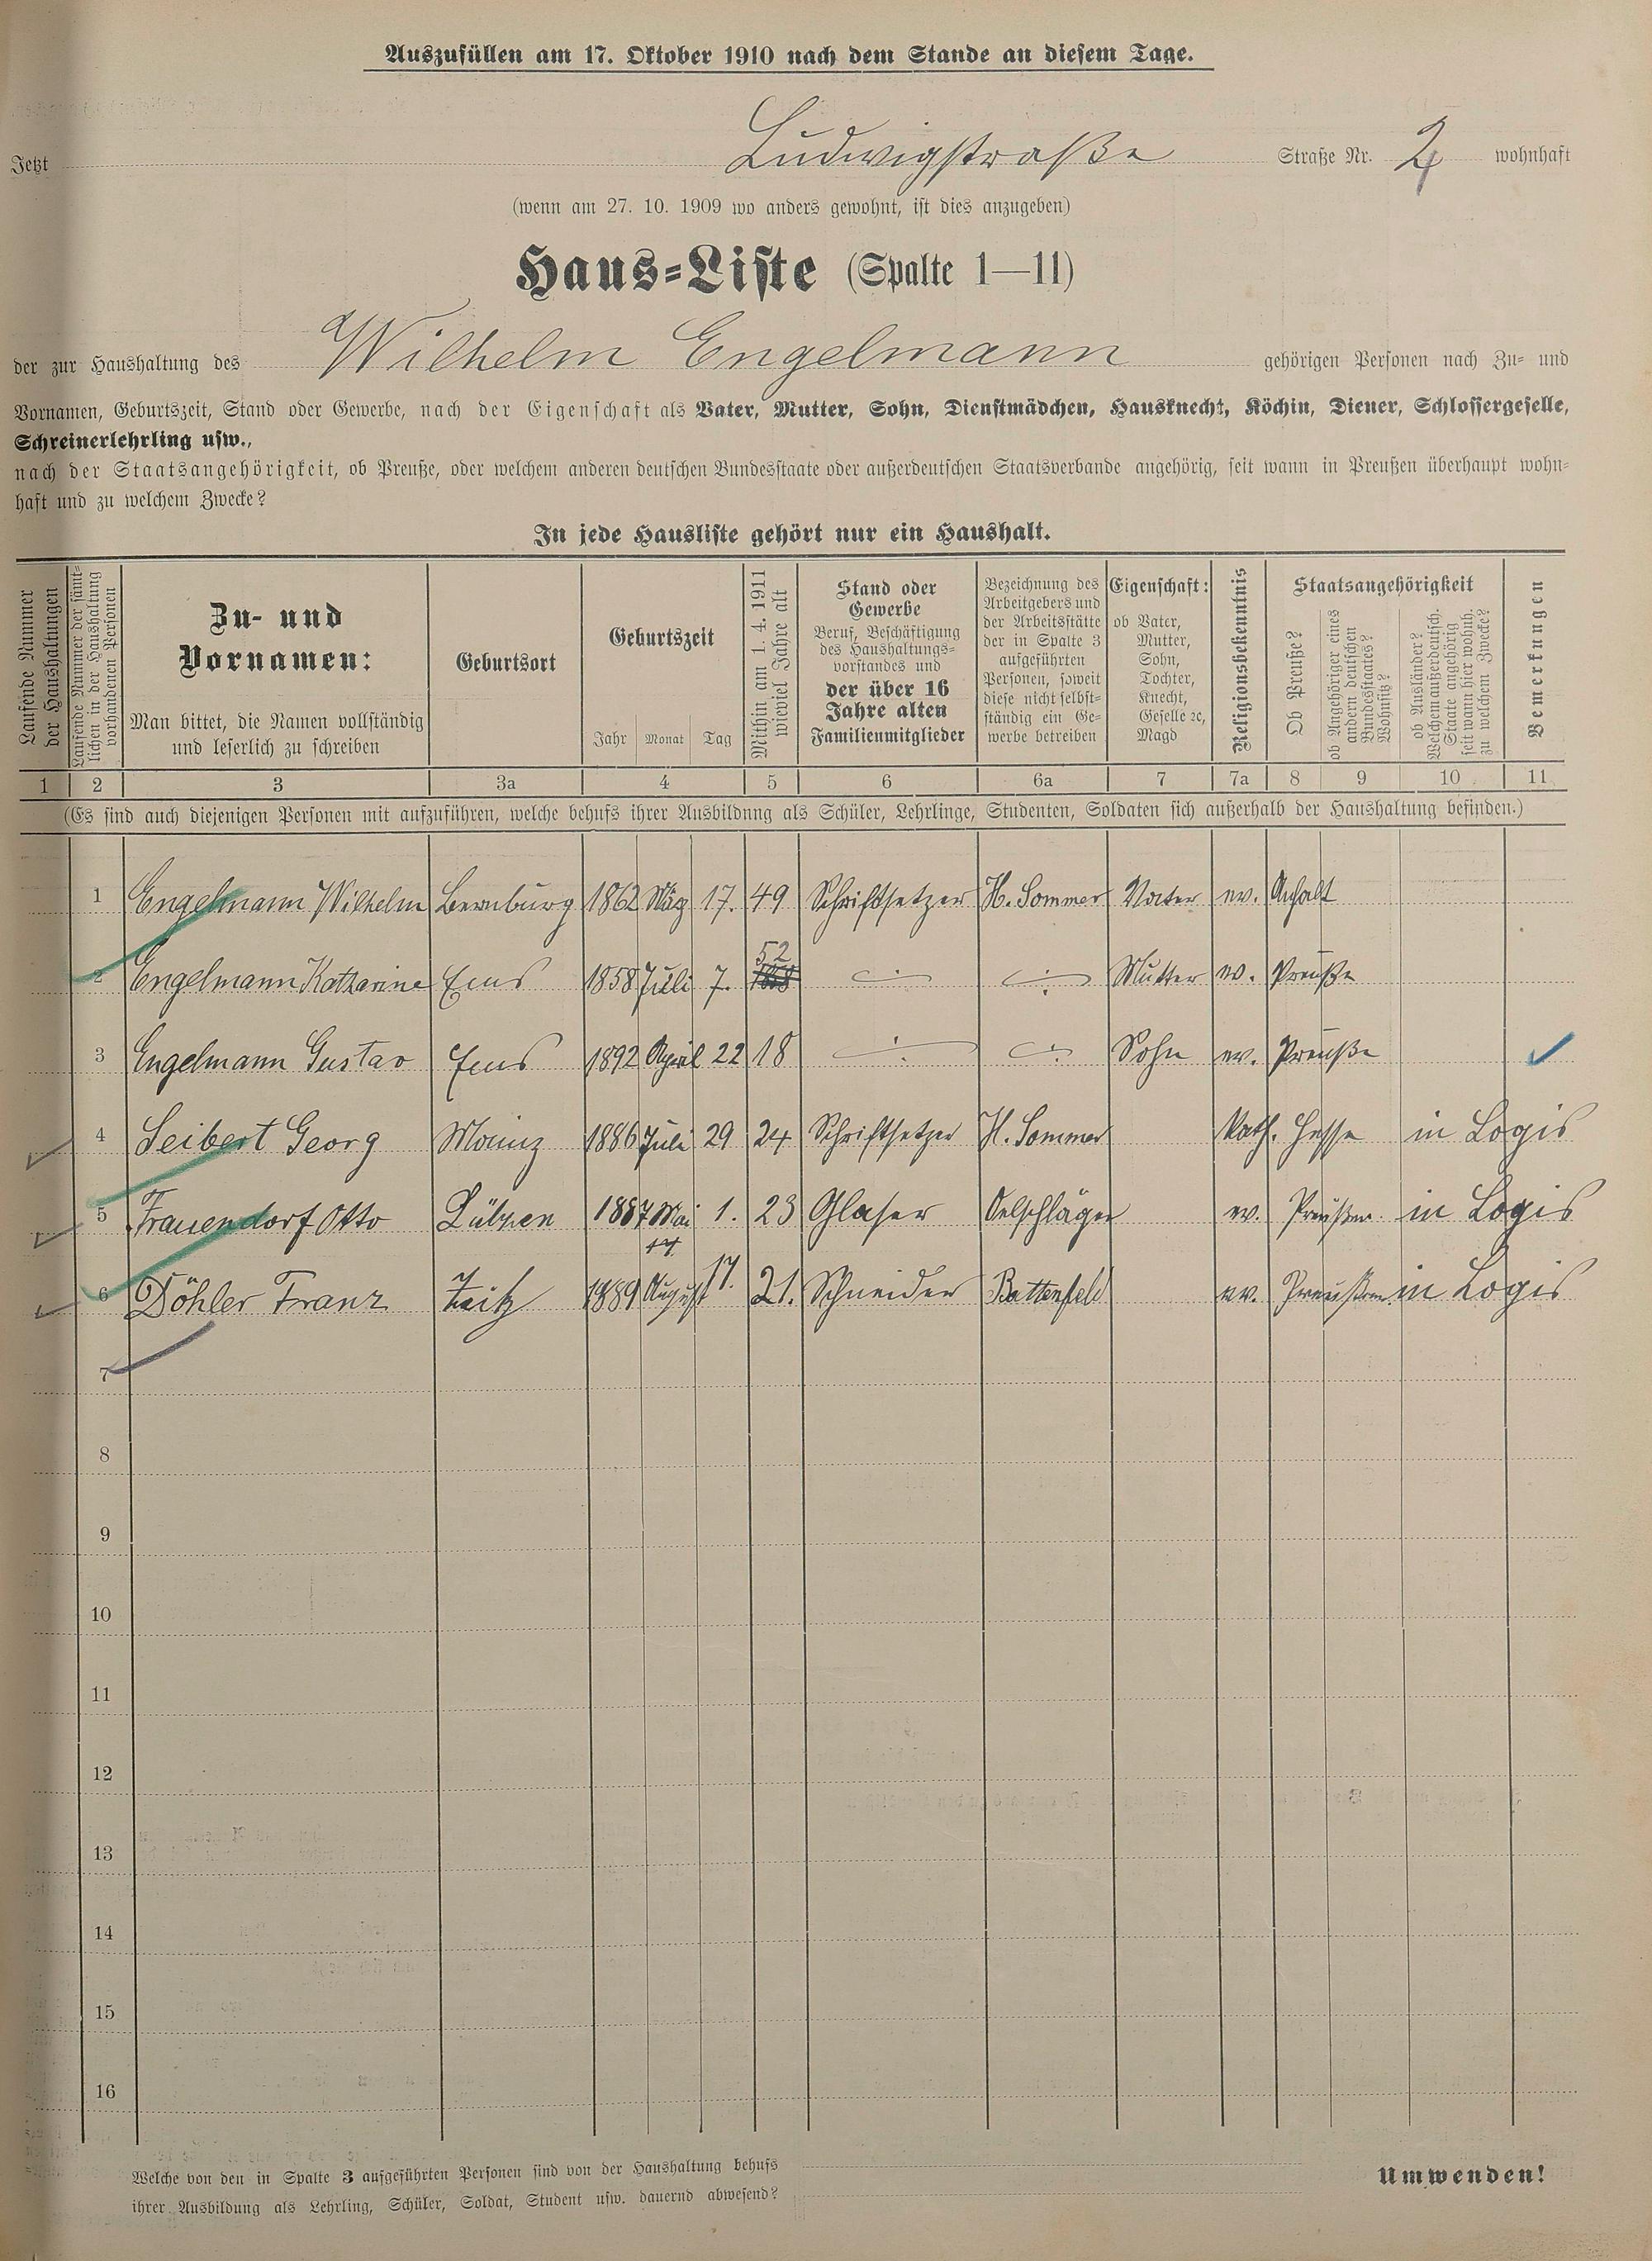 Auszufüllen am 17. Oktober 1910 nach dem Stande an diesem Tage.
Jetzt Ludwigstraße Straße Nr. 2 wohnhaft
(wenn am 27. 10. 1909 wo anders gewohnt, ist dies anzugeben)
Haus-Liste (Spalte 1—11)
der zur Haushaltung des Wilhelm Engelmann gehörigen Personen nach Zu- und
Vornamen, Geburtszeit, Stand oder Gewerbe, nach der Eigenschaft als Vater, Mutter, Sohn, Dienstmädchen, Hausknecht, Köchin, Diener, Schlossergeselle,
Schreinerlehrling usw.,
nach der Staatsangehörigkeit, ob Preuße, oder welchem anderen deutschen Bundesstaate oder außerdeutschen Staatsverbande angehörig, seit wann in Preußen überhaupt wohn-
haft und zu welchem Zwecke?
In jede Hausliste gehört nur ein Haushalt.
Laufende Nummer
der Haushaltungen
Laufende Nummer der sämt-
lichen in der Haushaltung
vorhandenen Personen
Zu- und
Vornamen:
Man bittet, die Namen vollständig
und leserlich zu schreiben
Geburtsort
Geburtszeit
Jahr Monat Tag
Mithin am 1. 4. 1911
wieviel Jahre alt
Stand oder
Gewerbe
Beruf, Beschäftigung
des Haushaltungs-
vorstandes und
der über 16
Jahre alten
Familienmitglieder
Bezeichnung des
Arbeitgebers und
der Arbeitsstätte
der in Spalte 3
aufgeführten
Personen, soweit
diese nicht selbst-
ständig ein Ge-
werbe betreiben
Eigenschaft:
ob Vater,
Mutter,
Sohn,
Tochter,
Knecht,
Geselle ꝛc,
Magd
Religionsbekenntnis
Staatsangehörigkeit
Ob Preuße?
ob Angehöriger eines
andern deutschen
Bundesstaates?
Wohnsitz?
ob Ausländer?
Welchem außerdeutsch.
Staate angehörig
seit wann hier wohnh.
zu welchem Zwecke?
Bemerkungen
1 2 3 3a 4 5 6 6a 7 7a 8 9 10 11
(Es sind auch diejenigen Personen mit aufzuführen, welche behufs ihrer Ausbildung als Schüler, Lehrlinge, Studenten, Soldaten sich außerhalb der Haushaltung befinden.)
1 Engelmann Wilhelm Bernburg 1862 März 17. 49 Schriftsetzer H. Sommer Vater ev. Anhalt
52
2 Engelmann Katharine Ems 1858 Juli 7. Mutter ev. Preuße
3 Engelmann Gustav Ems 1892 April 22 18 Sohn ev. Preuße
4 Seibert Georg Mainz 1886 Juli 29 24 Schriftsetzer H. Sommer Kath. Hesse in Logis
5 Frauendorf Otto Lützen 1887 Mai 1. 23 Glaser Oelschläger ev. Preußen. in Logis
6 Döhler Franz Zeitz 1889 August 17. 21. Schneider Battenfeld ev. Preußen. in Logis
7
8
9
10
11
12
13
14
15
16
Welche von den in Spalte 3 aufgeführten Personen sind von der Haushaltung behufs
ihrer Ausbildung als Lehrling, Schüler, Soldat, Student usw. dauernd abwesend?
Umwenden!